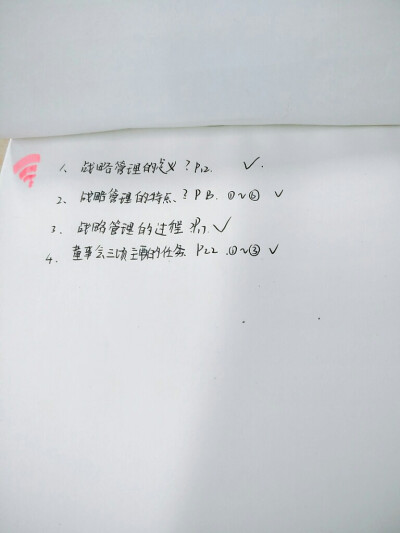 1、战略管理的定义？P12. ✓.
2、战略管理的特点、？P13. ①~⑥ ✓
3. 战略管理的过程 P17 ✓
4. 董事会三项主要的任务 P22 .①~③ ✓